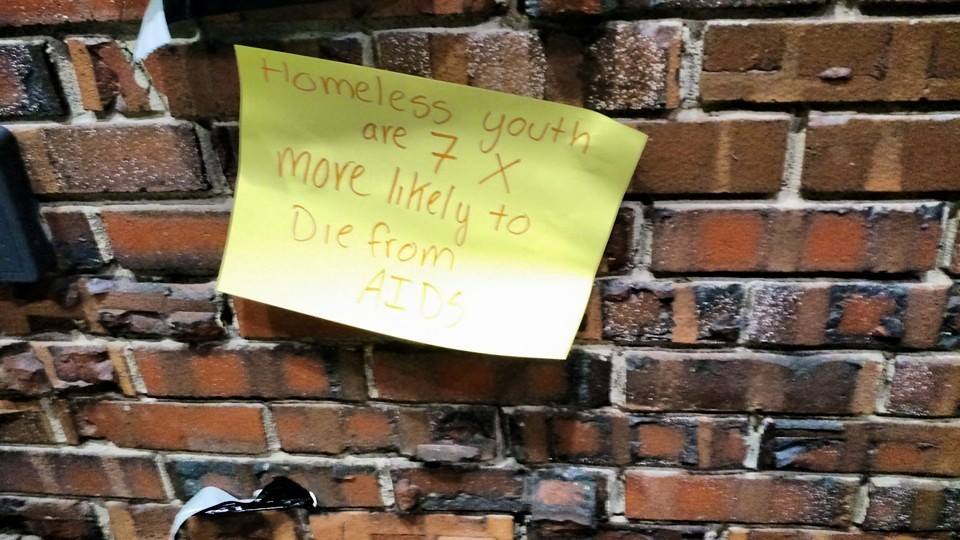 Homeless youth
are 7 X
more likely to
Die from
AIDS